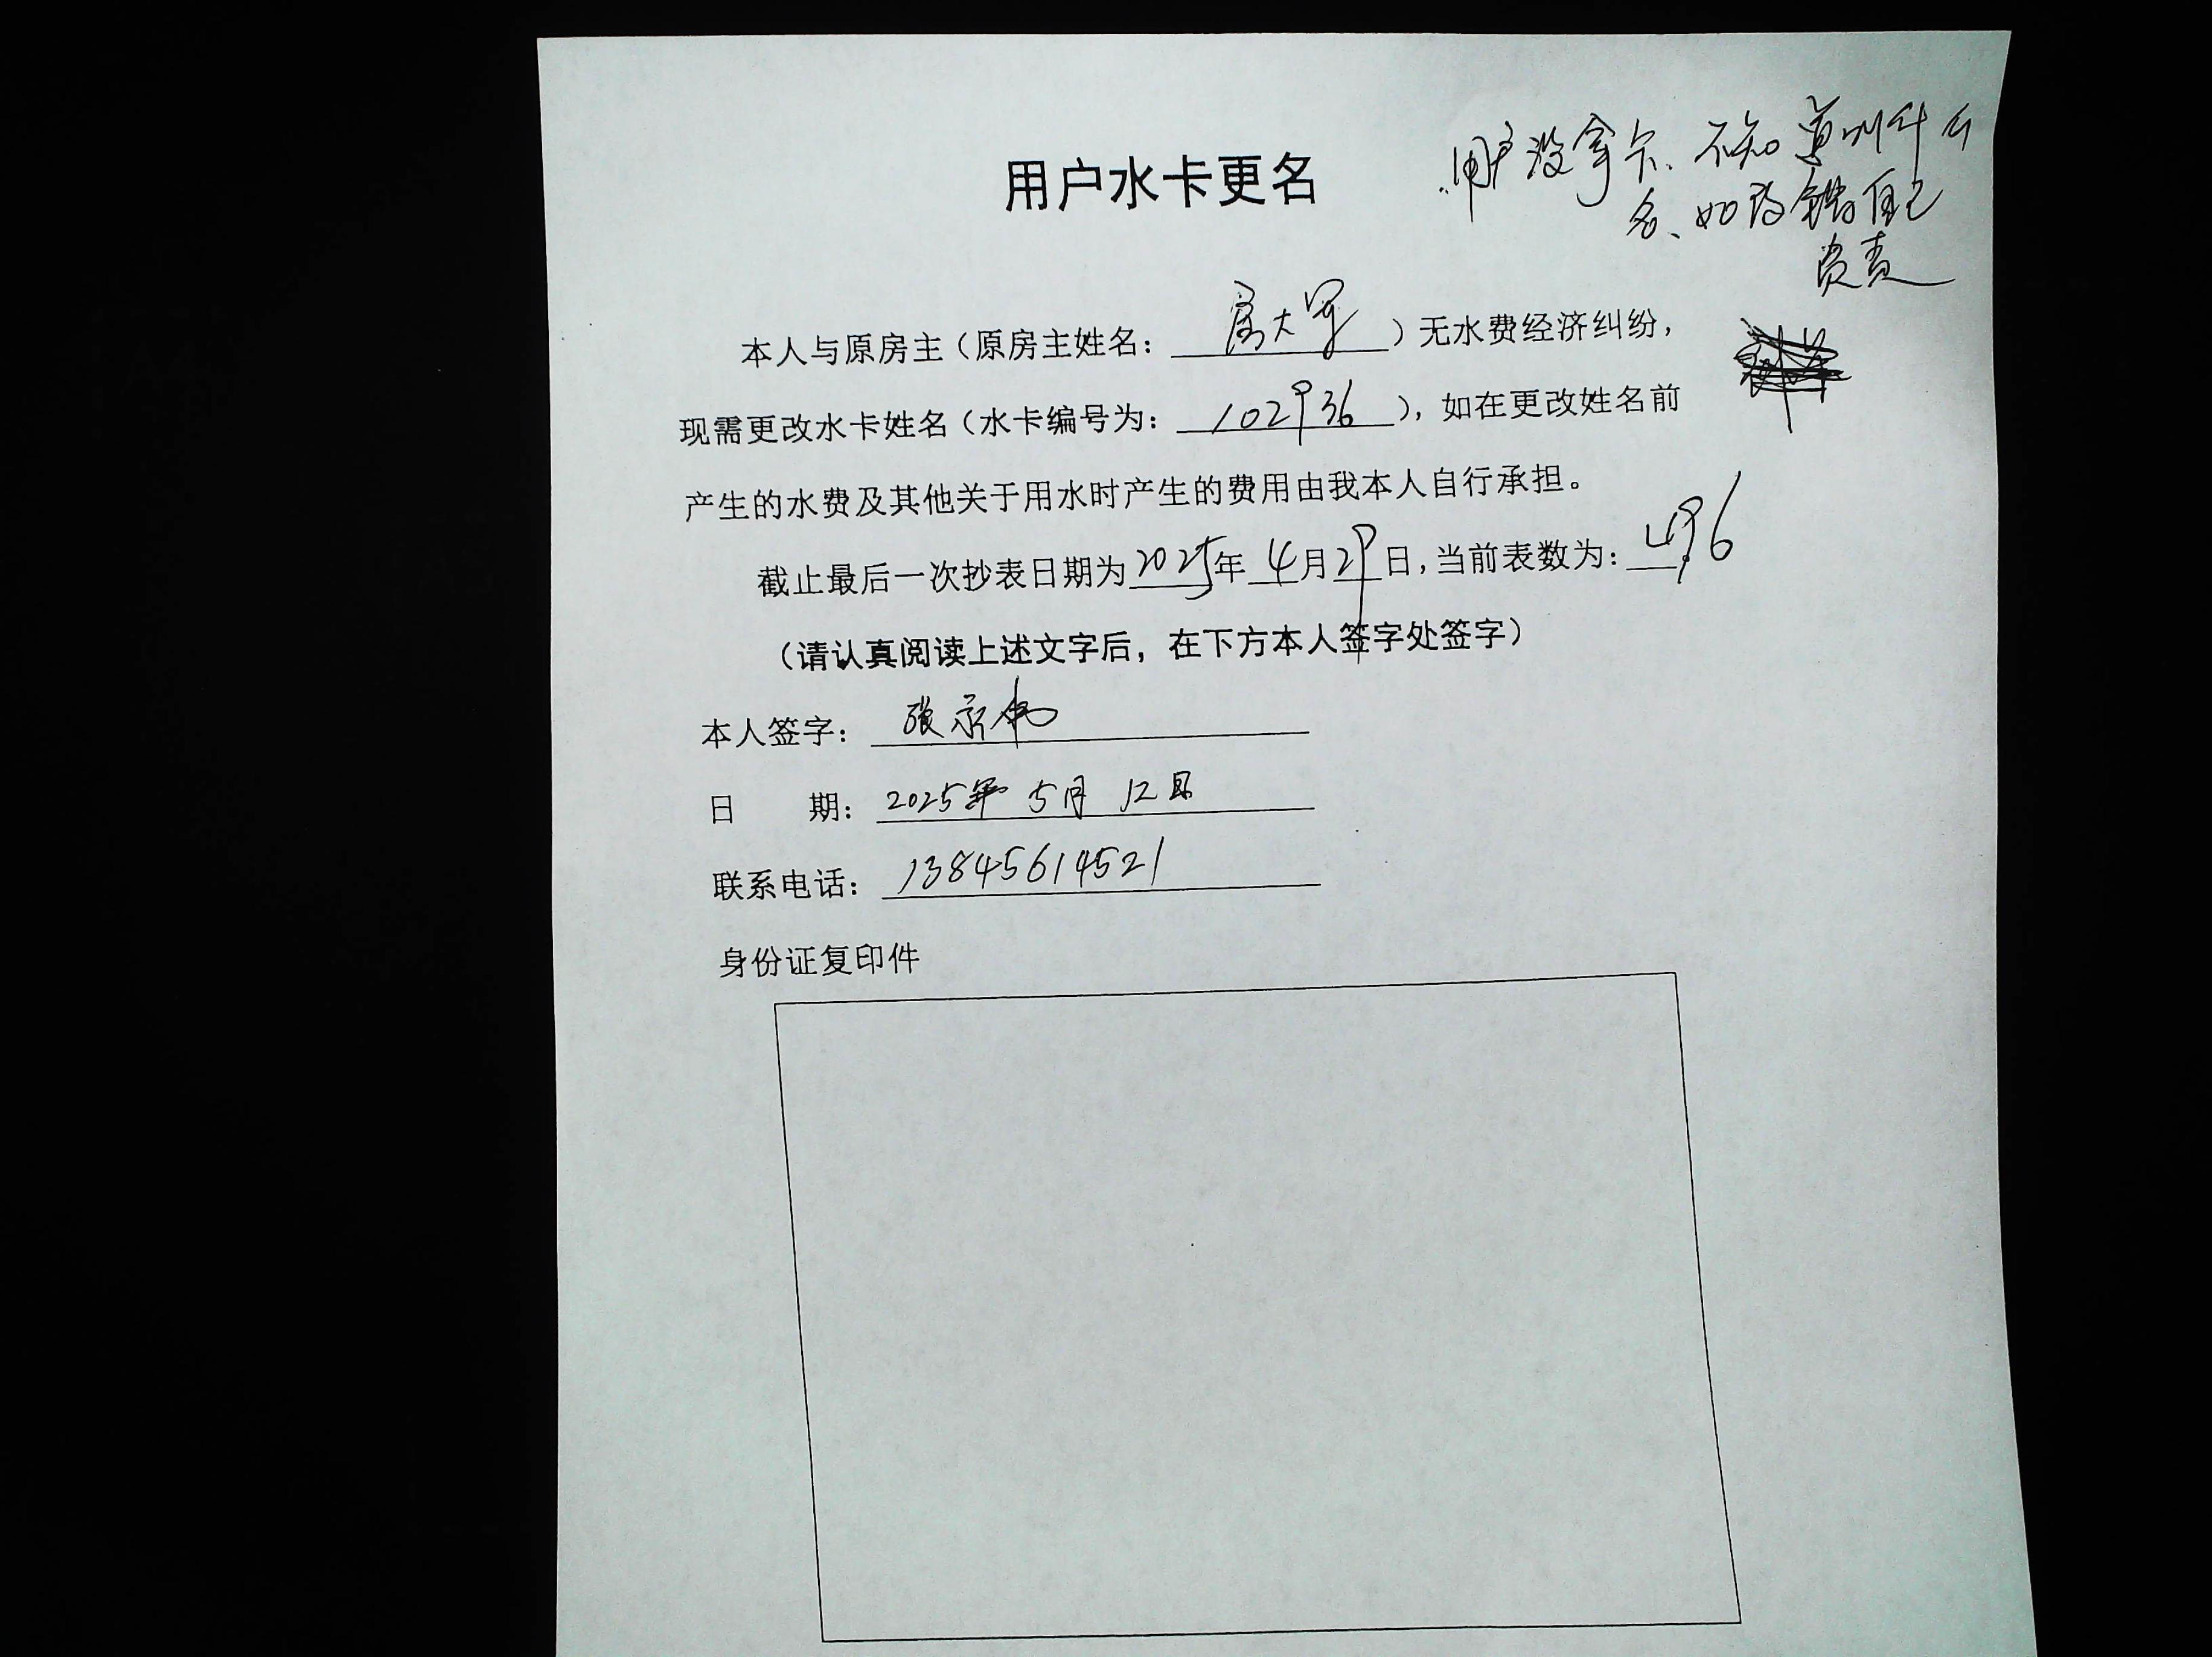 用户水卡更名
用户没拿卡、不知道叫什么
名、如改错自己
负责
本人与原房主（原房主姓名：大军）无水费经济纠纷，
现需更改水卡姓名（水卡编号为：102936），如在更改姓名前
产生的水费及其他关于用水时产生的费用由我本人自行承担。
截止最后一次抄表日期为2025年4月29日，当前表数为：496
（请认真阅读上述文字后，在下方本人签字处签字）
本人签字：张
日 期：2025年 5月 12日
联系电话：13845614521
身份证复印件